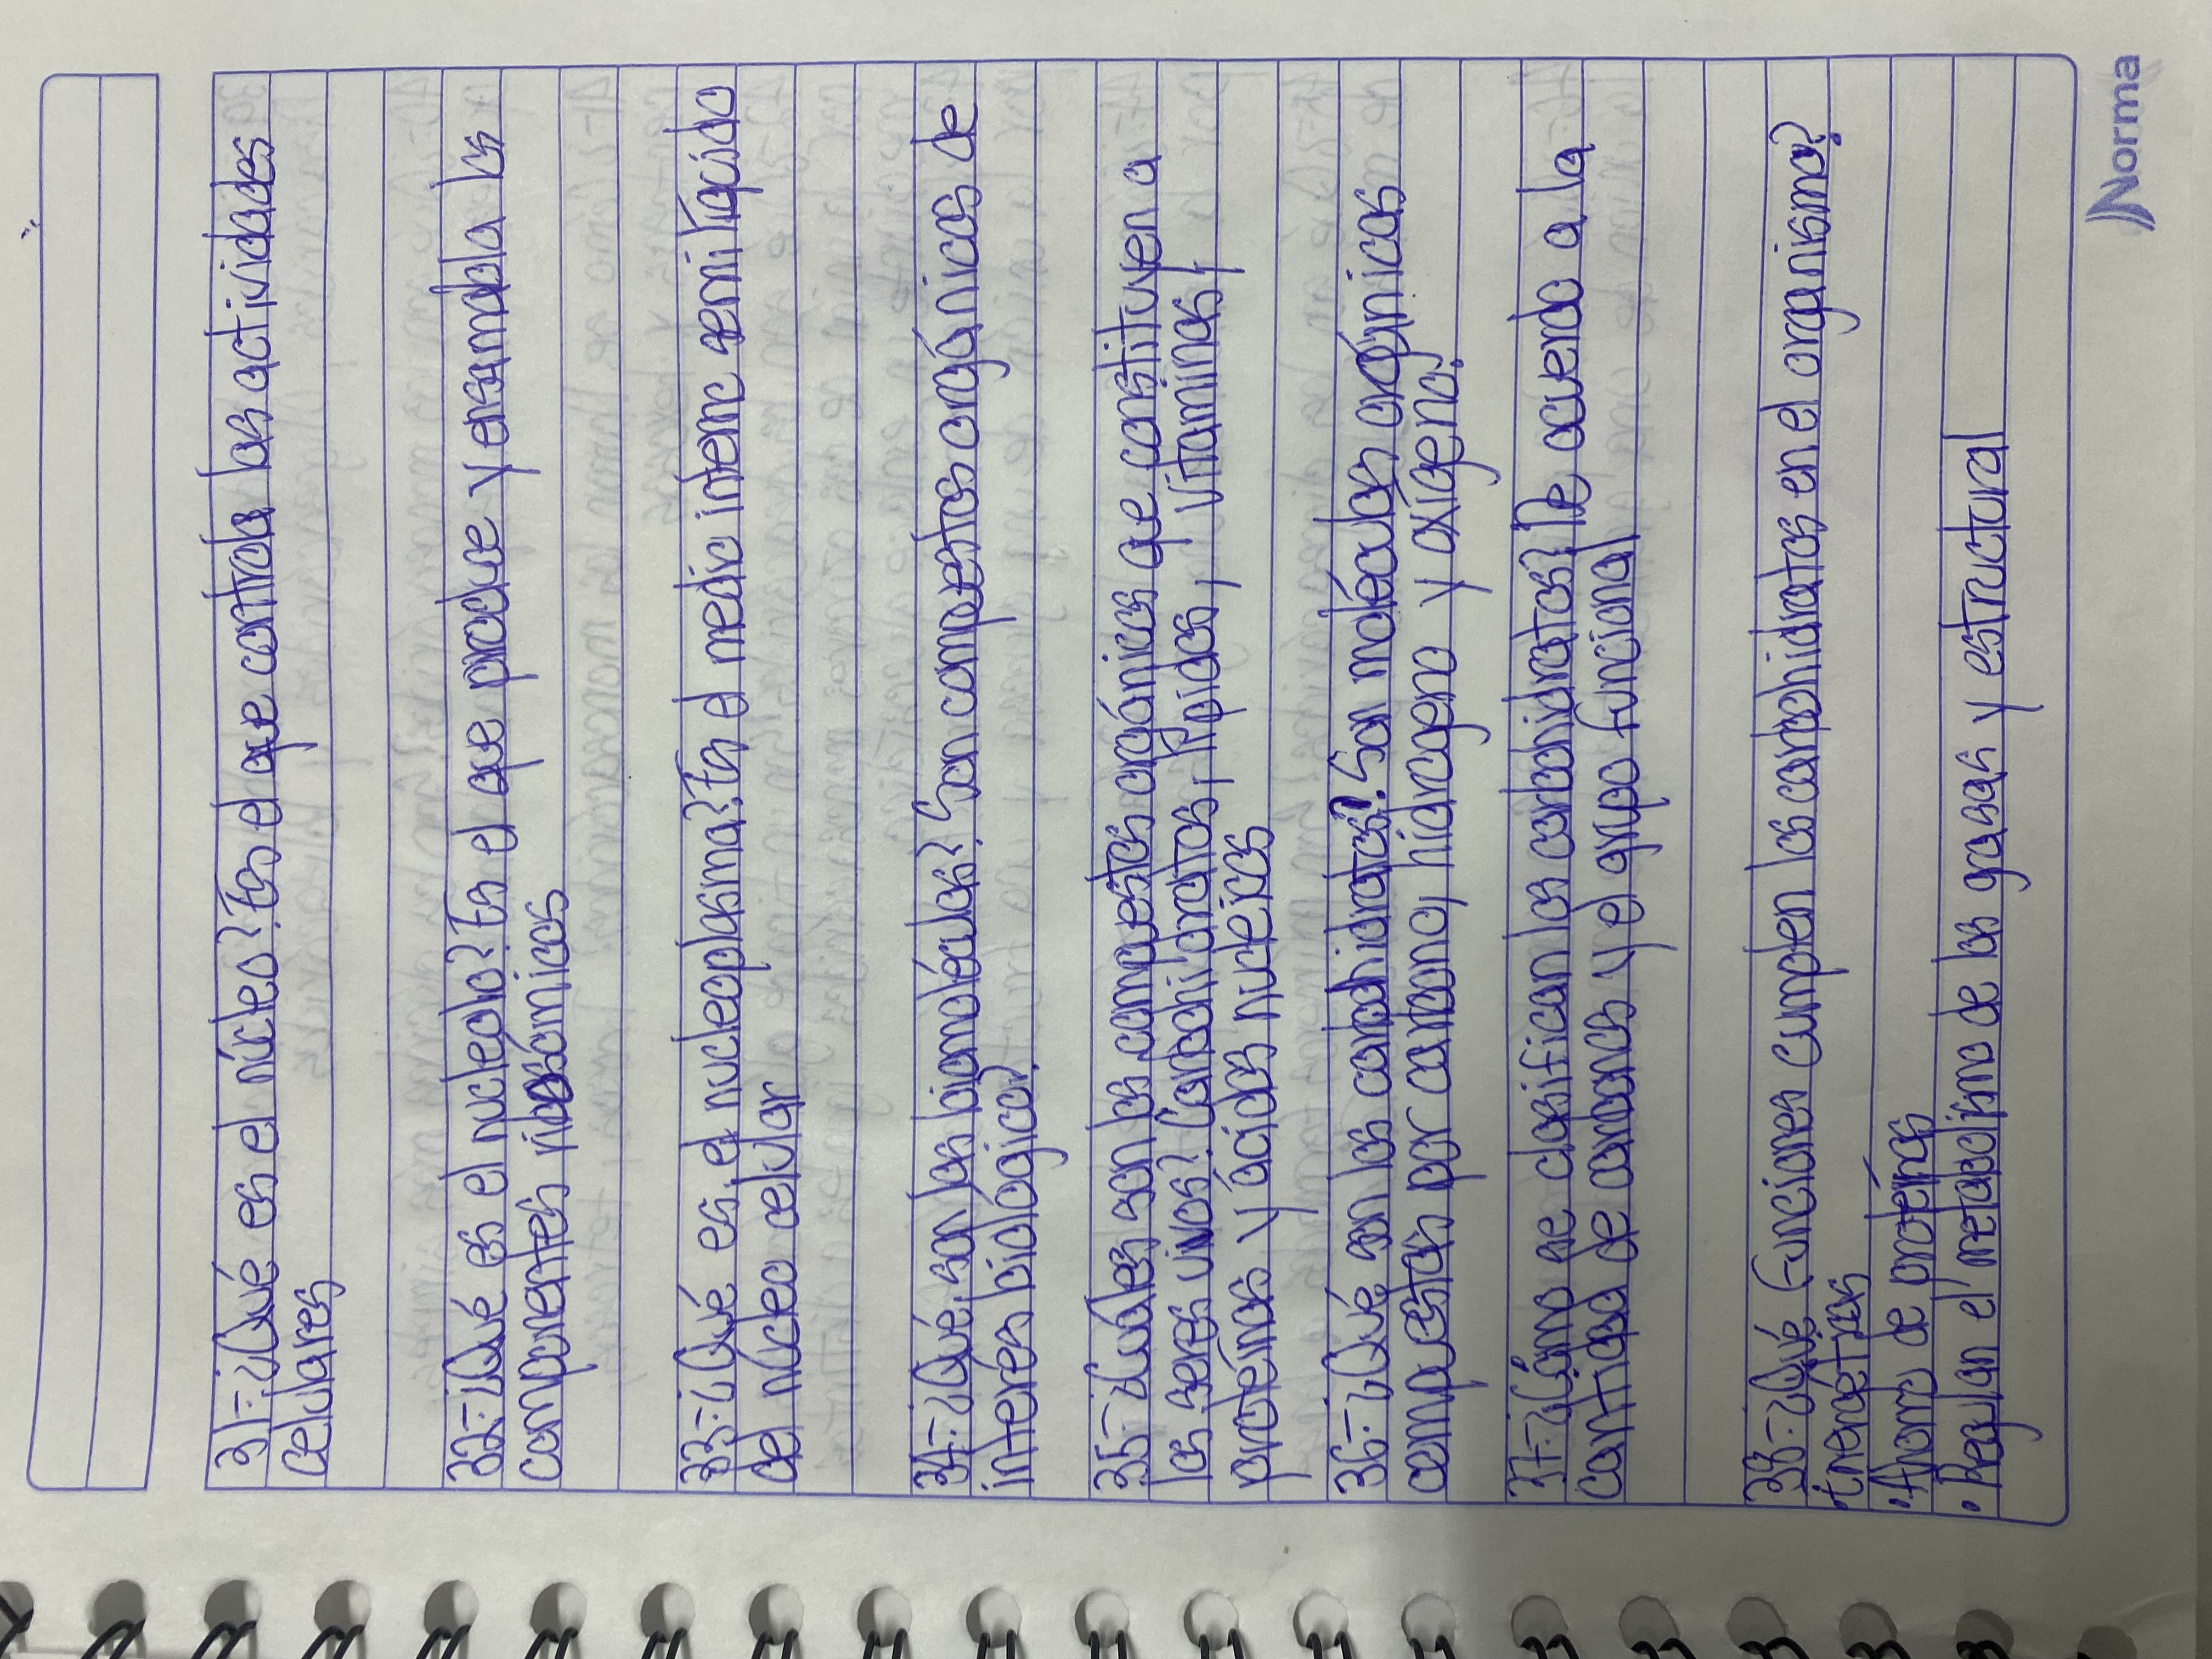 31-¿Qué es el núcleo? Es el que controla las actividades
celulares
32-¿Qué es el nucleolo? Es el que produce y ensambla los
componentes ribosómicos
33-¿Qué es el nucleoplasma? Es el medio interno semilíquido
del núcleo celular
34-¿Qué son las biomoléculas? Son compuestos orgánicos de
interés biológico.
35-¿Cuáles son los compuestos orgánicos que constituyen a
los seres vivos? Carbohidratos, lípidos, vitaminas,
proteínas y ácidos nucleicos
36-¿Qué son los carbohidratos? Son moléculas orgánicas
compuestas por carbono, hidrogeno y oxígeno.
37-¿Cómo se clasifican los carbohidratos? De acuerdo a la
cantidad de carbonos y el grupo funcional
38-¿Qué funciones cumplen los carbohidratos en el organismo?
Energéticas
·Ahorro de proteínas
·Regulan el metabolismo de las grasas y estructural
Norma